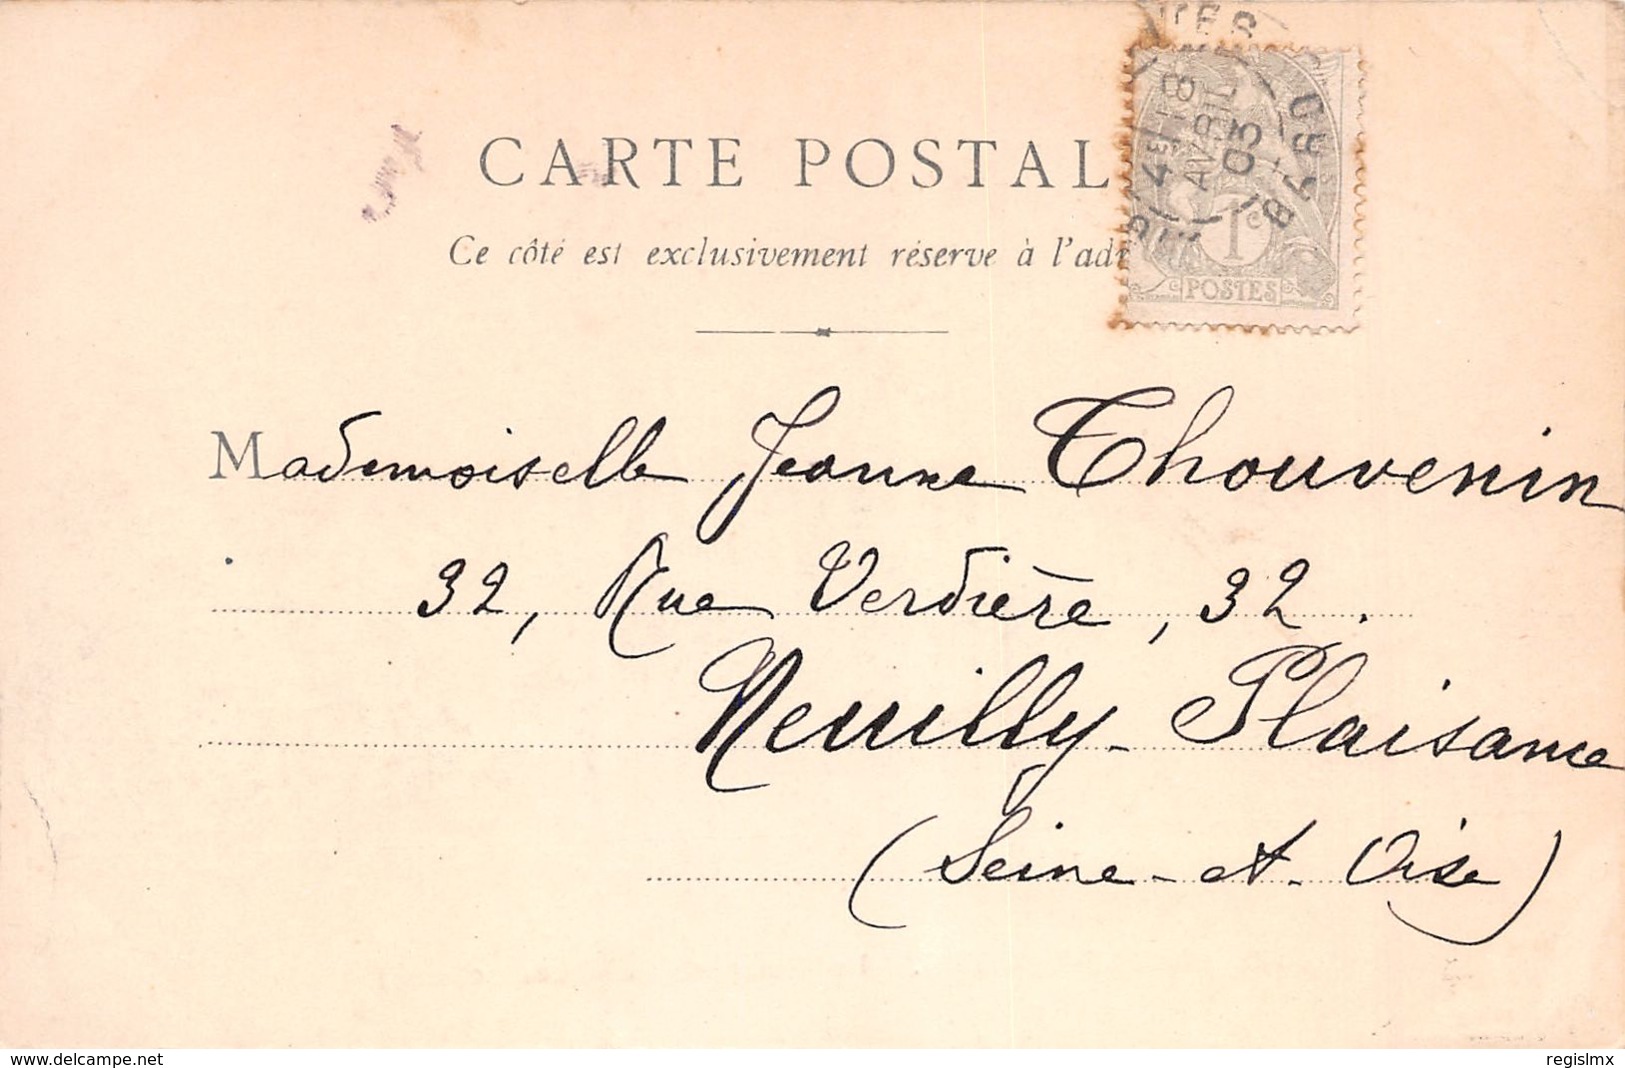 CARTE POSTAL
Ce côté est exclusivement réservé à l'adr
4E 18
AVRIL
03
1c
POSTES
Mademoiselle Jeanne Thouvenin
32, Rue Verdière, 32.
Neuilly-Plaisance
(Seine-et-Oise)
www.delcampe.net
regislmx